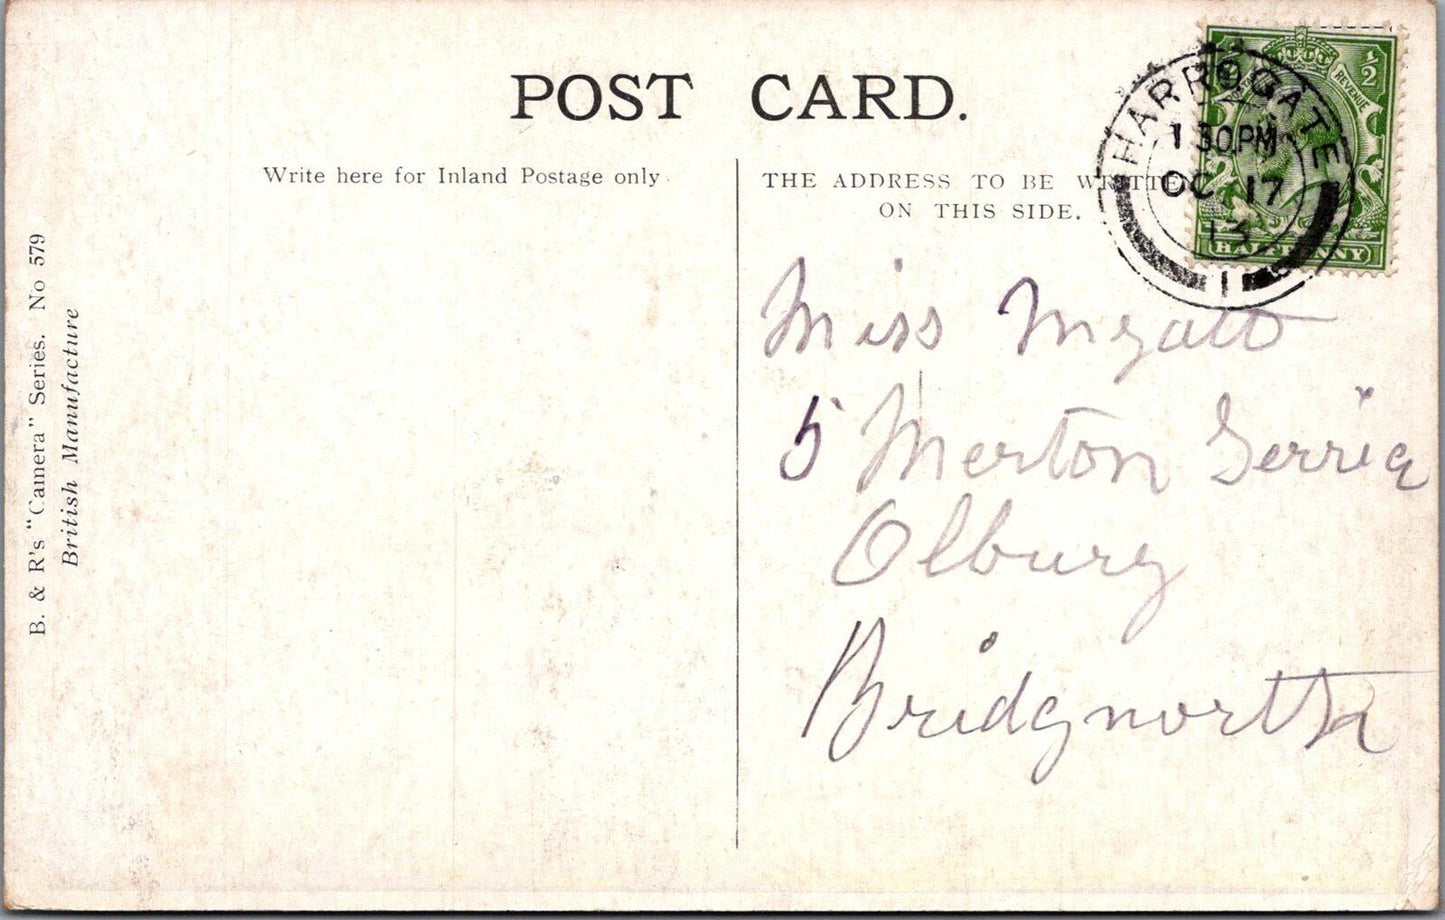 POST CARD.
Write here for Inland Postage only.
THE ADDRESS TO BE WRITTEN
ON THIS SIDE.
B. & R's "Camera" Series. No 579
British Manufacture
HARROGATE
1 30.PM
OC 17
13
1
½
REVENUE
HALFPENNY
Miss Myatt
5 Merton Gerrice
Olbury
Bridgnorth